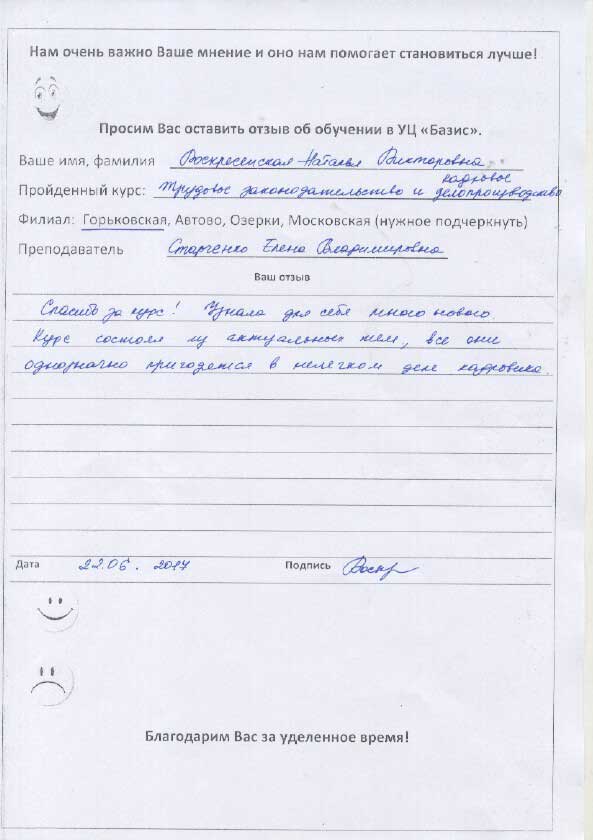 Нам очень важно Ваше мнение и оно нам помогает становиться лучше!
Просим Вас оставить отзыв об обучении в УЦ «Базис».
Ваше имя, фамилия Воскресенская Наталья Викторовна
Пройденный курс: Трудовое законодательство и кадровое делопроизводство
Филиал: Горьковская, Автово, Озерки, Московская (нужное подчеркнуть)
Преподаватель Старченко Елена Владимировна
Ваш отзыв
Спасибо за курс! Узнала для себя много нового.
Курс состоял из актуальных тем, все они
однозначно пригодятся в нелёгком деле кадровика.
Дата 22.06.2017 Подпись Воскр
Благодарим Вас за уделенное время!